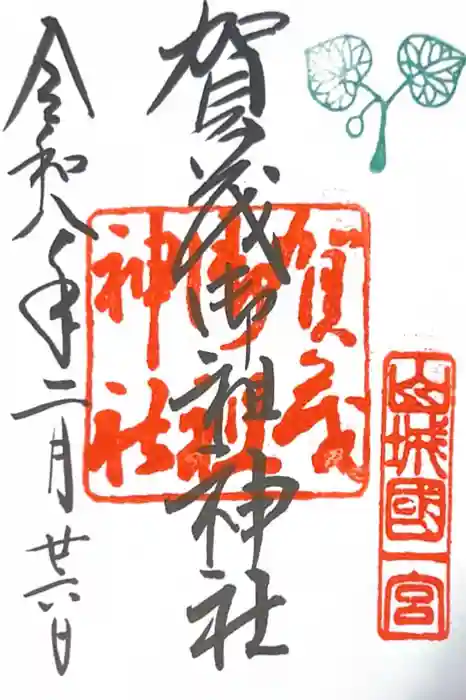 山城國一宮
賀茂御祖神社
賀茂
御祖
神社
令和八年二月廿六日